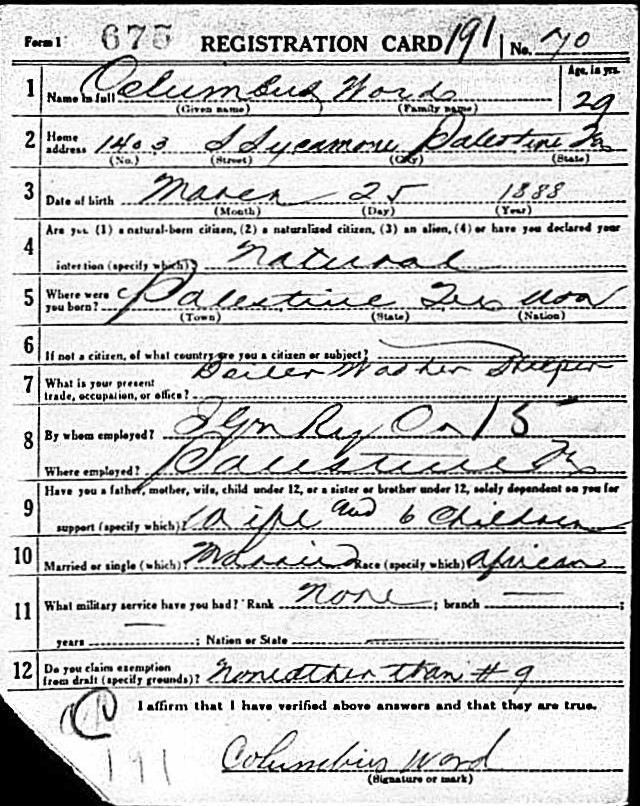 Form 1 675 REGISTRATION CARD 191 No. 70
1 Name in full Columbus Word Age, in yrs. 29
(Given name) (Family name)
2 Home address 1403 S Sycamore Palestine Tex
(No.) (Street) (City) (State)
3 Date of birth March 25 1888
(Month) (Day) (Year)
4 Are you (1) a natural-born citizen, (2) a naturalized citizen, (3) an alien, (4) or have you declared your
intention (specify which)? Natural
5 Where were you born? Palestine Tex USA
(Town) (State) (Nation)
6 If not a citizen, of what country are you a citizen or subject?
7 What is your present trade, occupation, or office? Boiler Washer Helper
8 By whom employed? I Gn Ry Co 15
Where employed? Palestine Tex
9 Have you a father, mother, wife, child under 12, or a sister or brother under 12, solely dependent on you for
support (specify which)? Wife and 6 Children
10 Married or single (which)? Married Race (specify which) African
11 What military service have you had? Rank None ; branch — ;
years — ; Nation or State —
12 Do you claim exemption from draft (specify grounds)? None other than # 9
I affirm that I have verified above answers and that they are true.
191 Columbus Word
(Signature or mark)